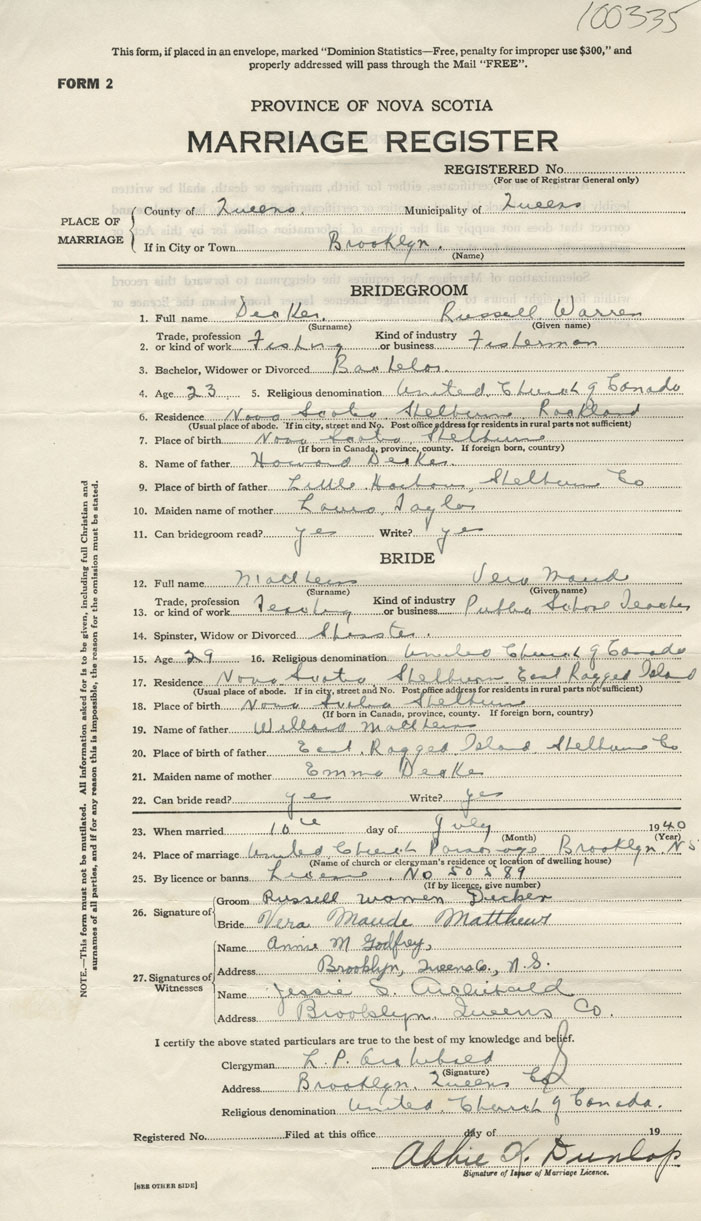 100335
This form, if placed in an envelope, marked "Dominion Statistics—Free, penalty for improper use $300," and
properly addressed will pass through the Mail "FREE".
FORM 2
PROVINCE OF NOVA SCOTIA
MARRIAGE REGISTER
REGISTERED No.
(For use of Registrar General only)
PLACE OF MARRIAGE
County of Queens Municipality of Queens
If in City or Town Brooklyn.
(Name)
BRIDEGROOM
1. Full name Decker. Russell Warren
(Surname) (Given name)
2. Trade, profession or kind of work Fishing Kind of industry or business Fisherman
3. Bachelor, Widower or Divorced Bachelor
4. Age 23 5. Religious denomination United Church of Canada
6. Residence Nova Scotia Shelburne Rockland
(Usual place of abode. If in city, street and No. Post office address for residents in rural parts not sufficient)
7. Place of birth Nova Scotia Shelburne
(If born in Canada, province, county. If foreign born, country)
8. Name of father Howard Decker
9. Place of birth of father Little Harbour, Shelburne Co
10. Maiden name of mother Laura Taylor
11. Can bridegroom read? yes Write? yes
BRIDE
12. Full name Matthews Vera Maude
(Surname) (Given name)
13. Trade, profession or kind of work Teaching Kind of industry or business Public School Teacher
14. Spinster, Widow or Divorced Spinster.
15. Age 29 16. Religious denomination United Church of Canada
17. Residence Nova Scotia Shelburne East Ragged Island
(Usual place of abode. If in city, street and No. Post office address for residents in rural parts not sufficient)
18. Place of birth Nova Scotia Shelburne
(If born in Canada, province, county. If foreign born, country)
19. Name of father Willard Matthews
20. Place of birth of father East Ragged Island Shelburne Co
21. Maiden name of mother Emma Decker
22. Can bride read? yes Write? yes
23. When married 10th day of July 1940
(Month) (Year)
24. Place of marriage United Church Parsonage Brooklyn, N S
(Name of church or clergyman's residence or location of dwelling house)
25. By licence or banns License. No 50589
(If by licence, give number)
26. Signature of
Groom Russell warren Decker
Bride Vera Maude Matthews
27. Signatures of Witnesses
Name Annie M Godfrey,
Address Brooklyn, Queens Co., N.S.
Name Jessie S. Archibald
Address Brooklyn. Queens Co.
I certify the above stated particulars are true to the best of my knowledge and belief.
Clergyman L. P. Archibald
(Signature)
Address Brooklyn. Queens Co
Religious denomination United Church of Canada.
Registered No. Filed at this office day of 19
Abbie K. Dunlop
Signature of Issuer of Marriage Licence.
[SEE OTHER SIDE]
NOTE.—This form must not be mutilated. All information asked for is to be given, including full Christian and
surnames of all parties, and if for any reason this is impossible, the reason for the omission must be stated.